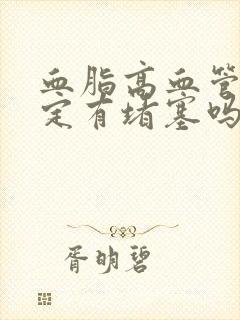 血脂高血管
定有堵塞吗
胥明碧